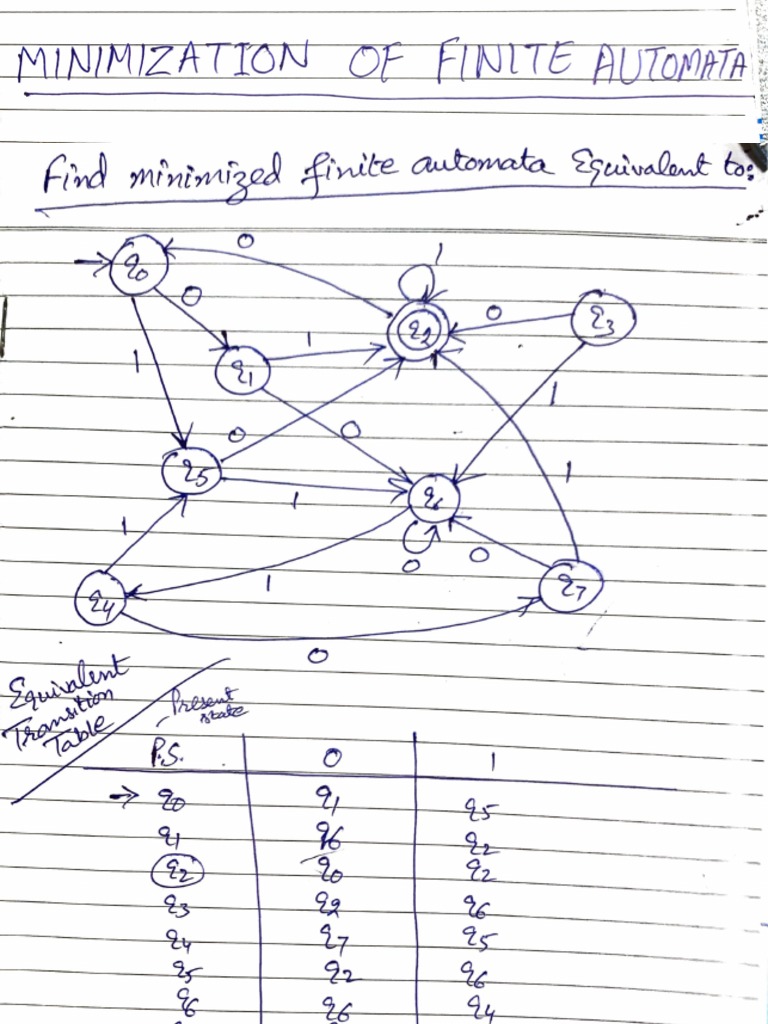 MINIMIZATION OF FINITE AUTOMATA
Find minimized finite automata Equivalent to:
q0 0 1
0 1 q1 1 q2 0 q3
q5 0 0 1
1 q6 1
1 0 0
q4 1 q7
0
Equivalent
Transition
Table
Present
state
P.S. 0 1
→ q0 q1 q5
q1 q6 q2
q2 q0 q2
q3 q2 q6
q4 q7 q5
q5 q2 q6
q6 q6 q4